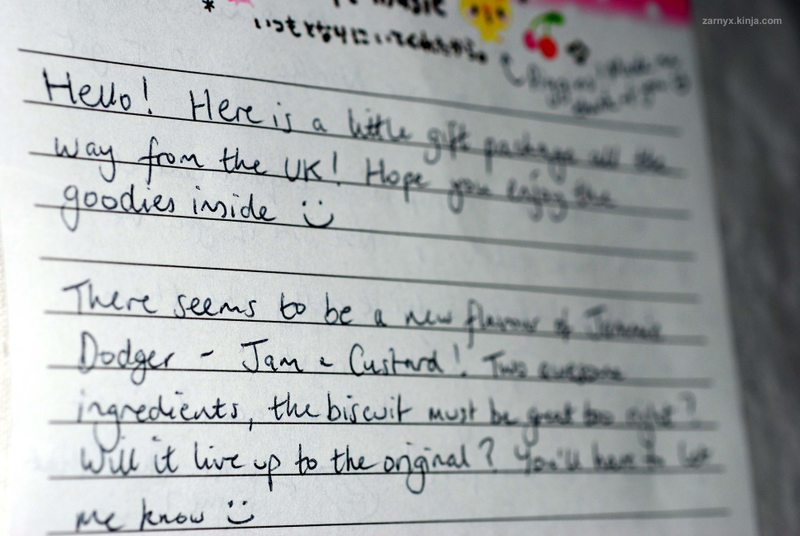 zarnyx.kinja.com
music
いつもとなりにいてくれたから。
Hello! Here is a little gift package all the
way from the UK! Hope you enjoy the
goodies inside :)
There seems to be a new flavour of Jammie
Dodger - Jam & Custard! Two awesome
ingredients, the biscuit must be great too right?
Will it live up to the original? You'll have to let
me know :)